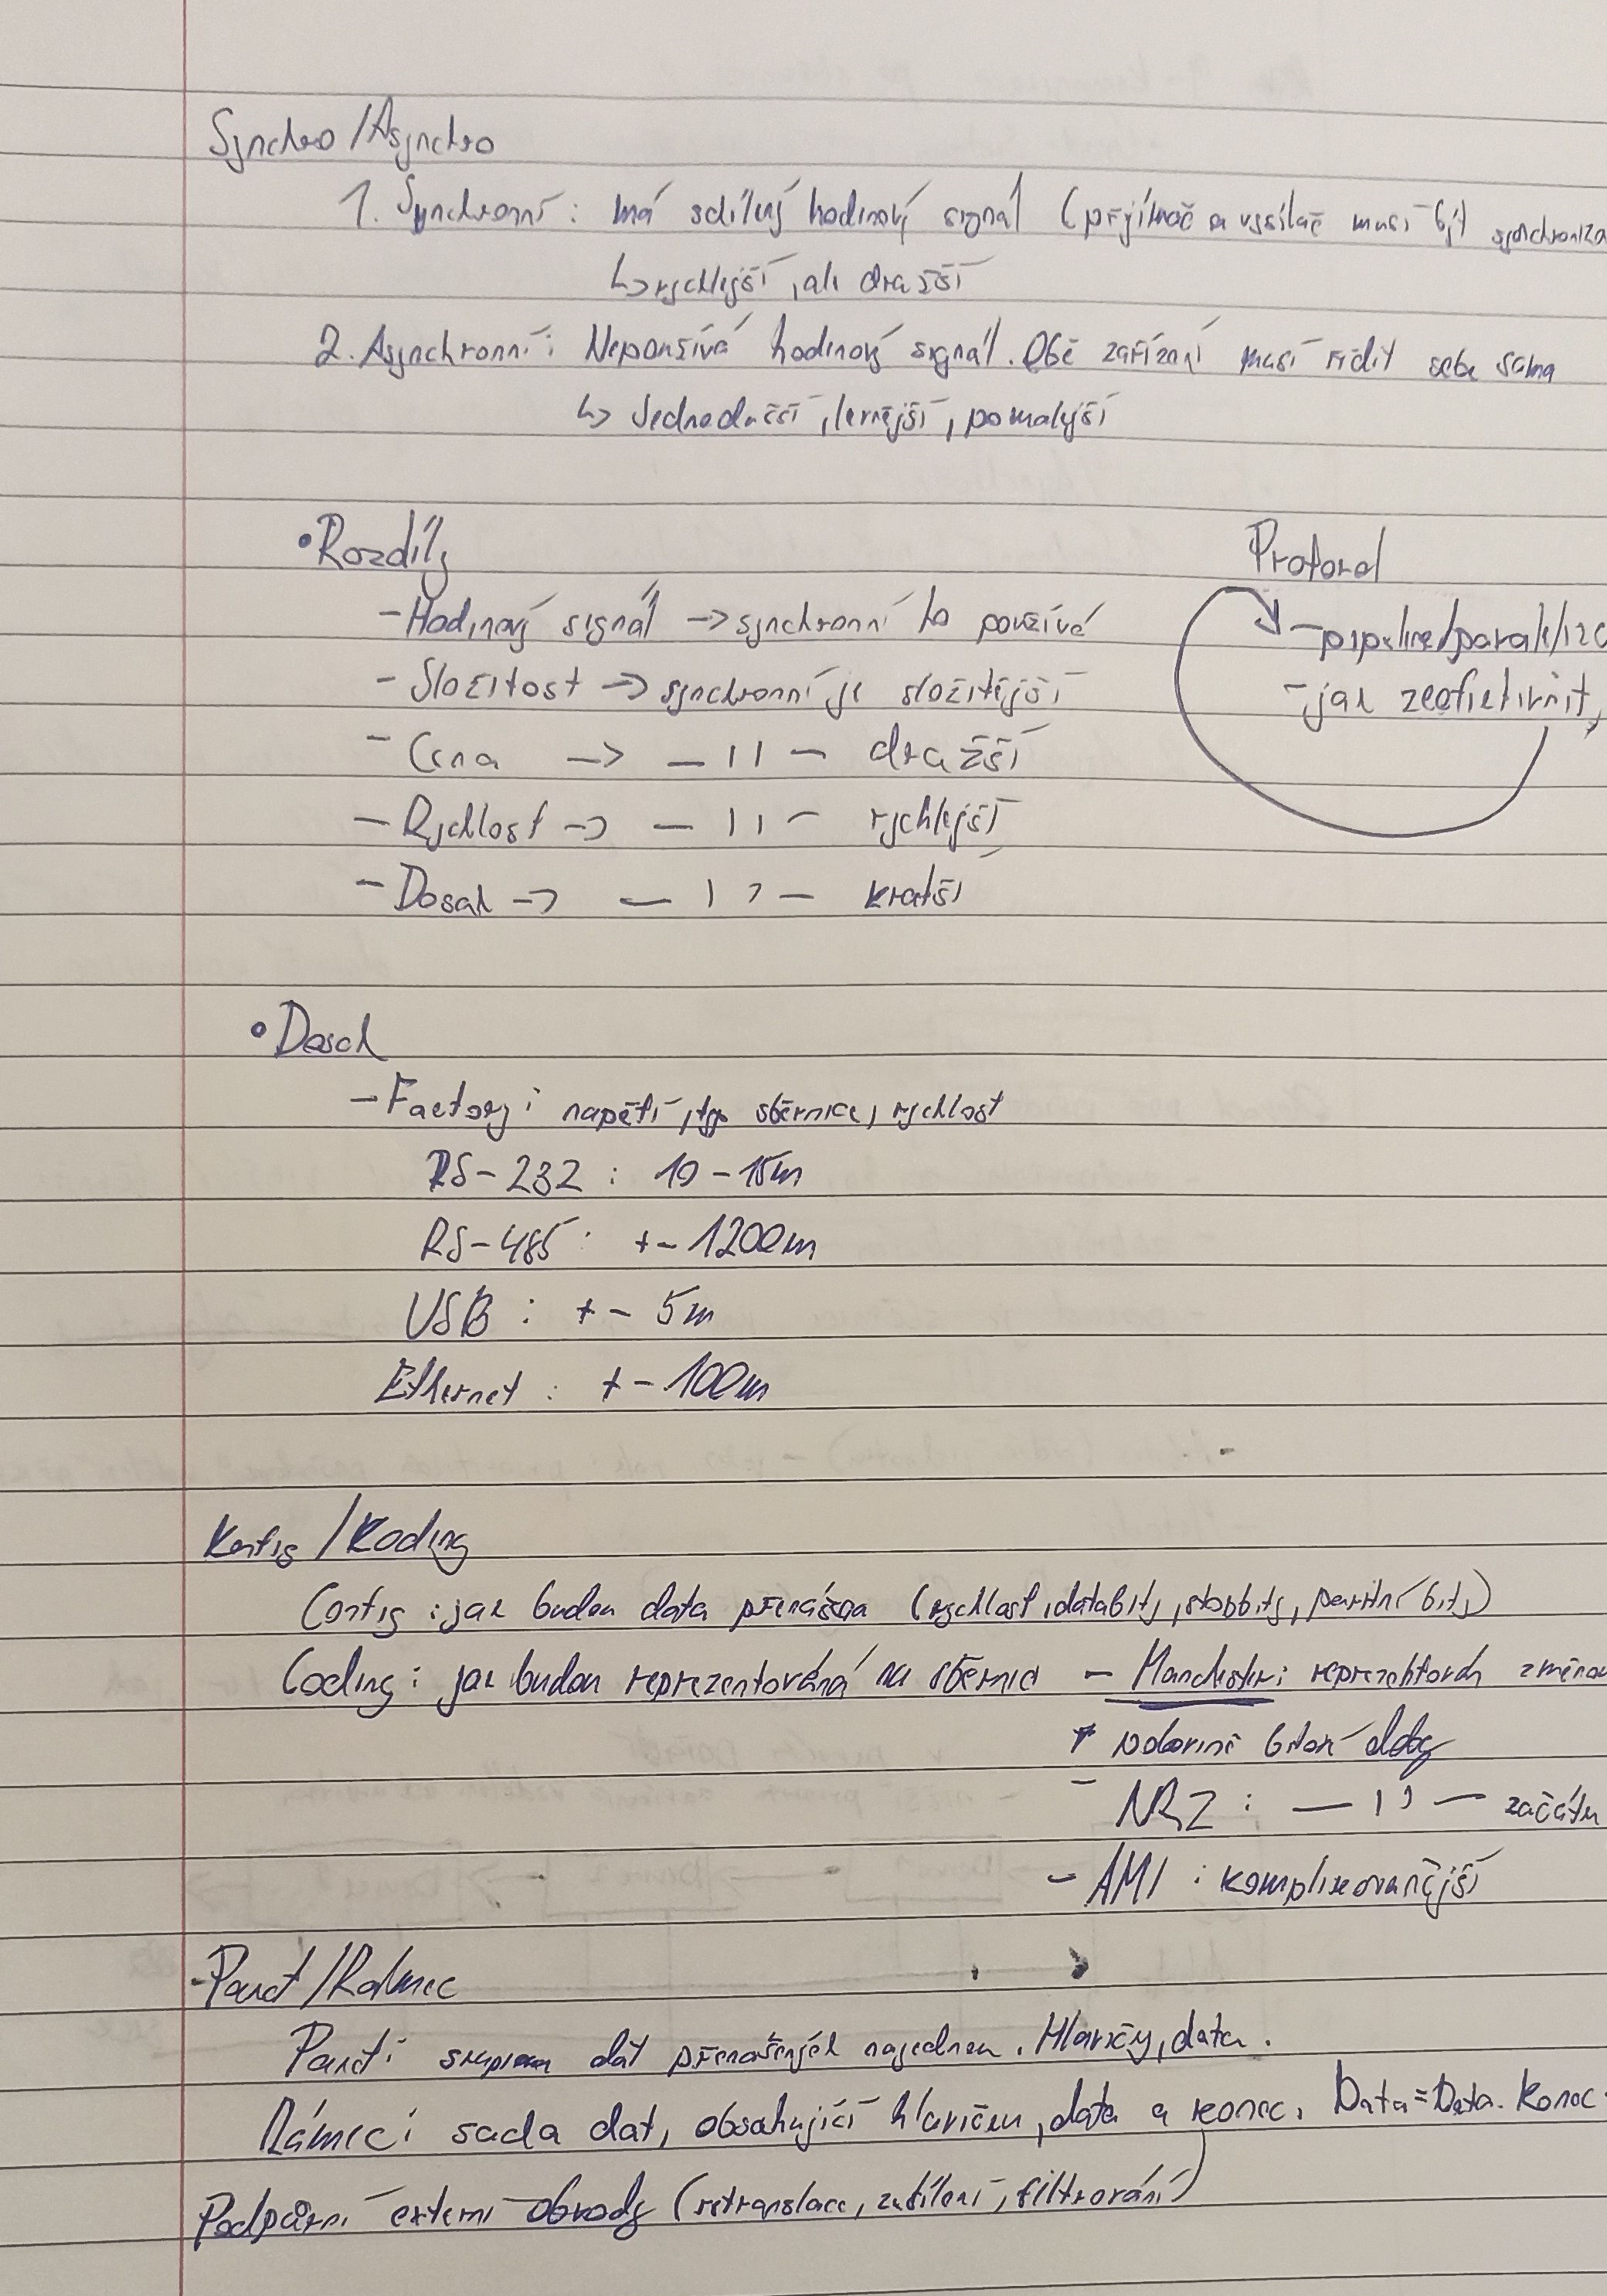 Synchro/Asynchro
1. Synchronní: má sdílený hodinový signál (přijímač a vysílač musí být synchroniza
↳ rychlejší, ale dražší
2. Asynchronní: Nepoužívá hodinový signál. Obě zařízení musí řídit sebe sama
↳ Jednodušší, levnější, pomalejší
• Rozdíly
- Hodinový signál -> synchronní to používá
- Složitost -> synchronní je složitější
- Cena -> — 11 — dražší
- Rychlost -> — 11 — rychlejší
- Dosah -> — 11 — kratší
Protokol
- pipeline/paralelizc
- jak zeefektivnit,
• Dosah
- Factory: napětí, typ sběrnice, rychlost
RS-232: 10-15m
RS-485: +- 1200m
USB: +- 5m
Ethernet: +- 100m
Konfig/Koding
Config: jak budou data přenášena (rychlost, databity, stopbity, paritní bity)
Coding: jak budou reprezentována na sběrnici - Manchester: reprezentován změnou
bitové doby
- NRZ: — 11 — začátku
- AMI: komplikovanější
- Paket/Rámec
Paket: skupina dat přenášených najednou. Hlavičky, data.
Rámec: sada dat, obsahující hlavičku, data a konec. Data=Data. Konec
Podpůrní externí obvody (retranslace, zesílení, filtrování)